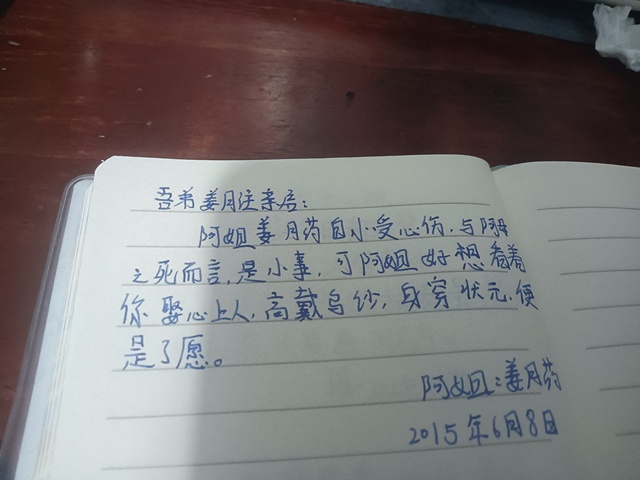 吾弟姜月注亲启:
阿姐姜月药自小受心伤,与阿
之死而言,是小事,可阿姐好想看着
你娶心上人,高戴乌纱,身穿状元,便
是了愿。
阿姐:姜月药
2015年6月8日